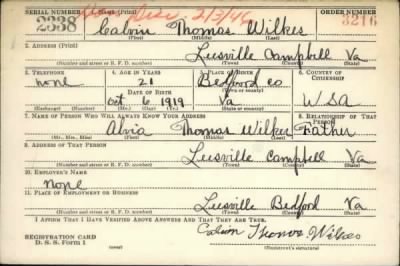 SERIAL NUMBER 1. NAME (Print) ORDER NUMBER
2338 Calvin Thomas Wilkes 3216
Disc. 2/3/46
(First) (Middle) (Last)
2. ADDRESS (Print)
Leesville Campbell Va
(Number and street or R. F. D. number) (Town) (County) (State)
3. TELEPHONE 4. AGE IN YEARS 5. PLACE OF BIRTH 6. COUNTRY OF CITIZENSHIP
none 21 Bedford co
DATE OF BIRTH (Town or county)
Oct 6 1919 Va USA
(Exchange) (Number) (Mo.) (Day) (Yr.) (State or country)
7. NAME OF PERSON WHO WILL ALWAYS KNOW YOUR ADDRESS 8. RELATIONSHIP OF THAT PERSON
Alvia Thomas Wilkes Father
(Mr., Mrs., Miss) (First) (Middle) (Last)
9. ADDRESS OF THAT PERSON
Leesville Campbell Va
(Number and street or R. F. D. number) (Town) (County) (State)
10. EMPLOYER'S NAME
None
11. PLACE OF EMPLOYMENT OR BUSINESS
Leesville Bedford Va
(Number and street or R. F. D. number) (Town) (County) (State)
I AFFIRM THAT I HAVE VERIFIED ABOVE ANSWERS AND THAT THEY ARE TRUE.
REGISTRATION CARD Calvin Thomas Wilkes
D. S. S. Form 1 (over) (Registrant's signature)